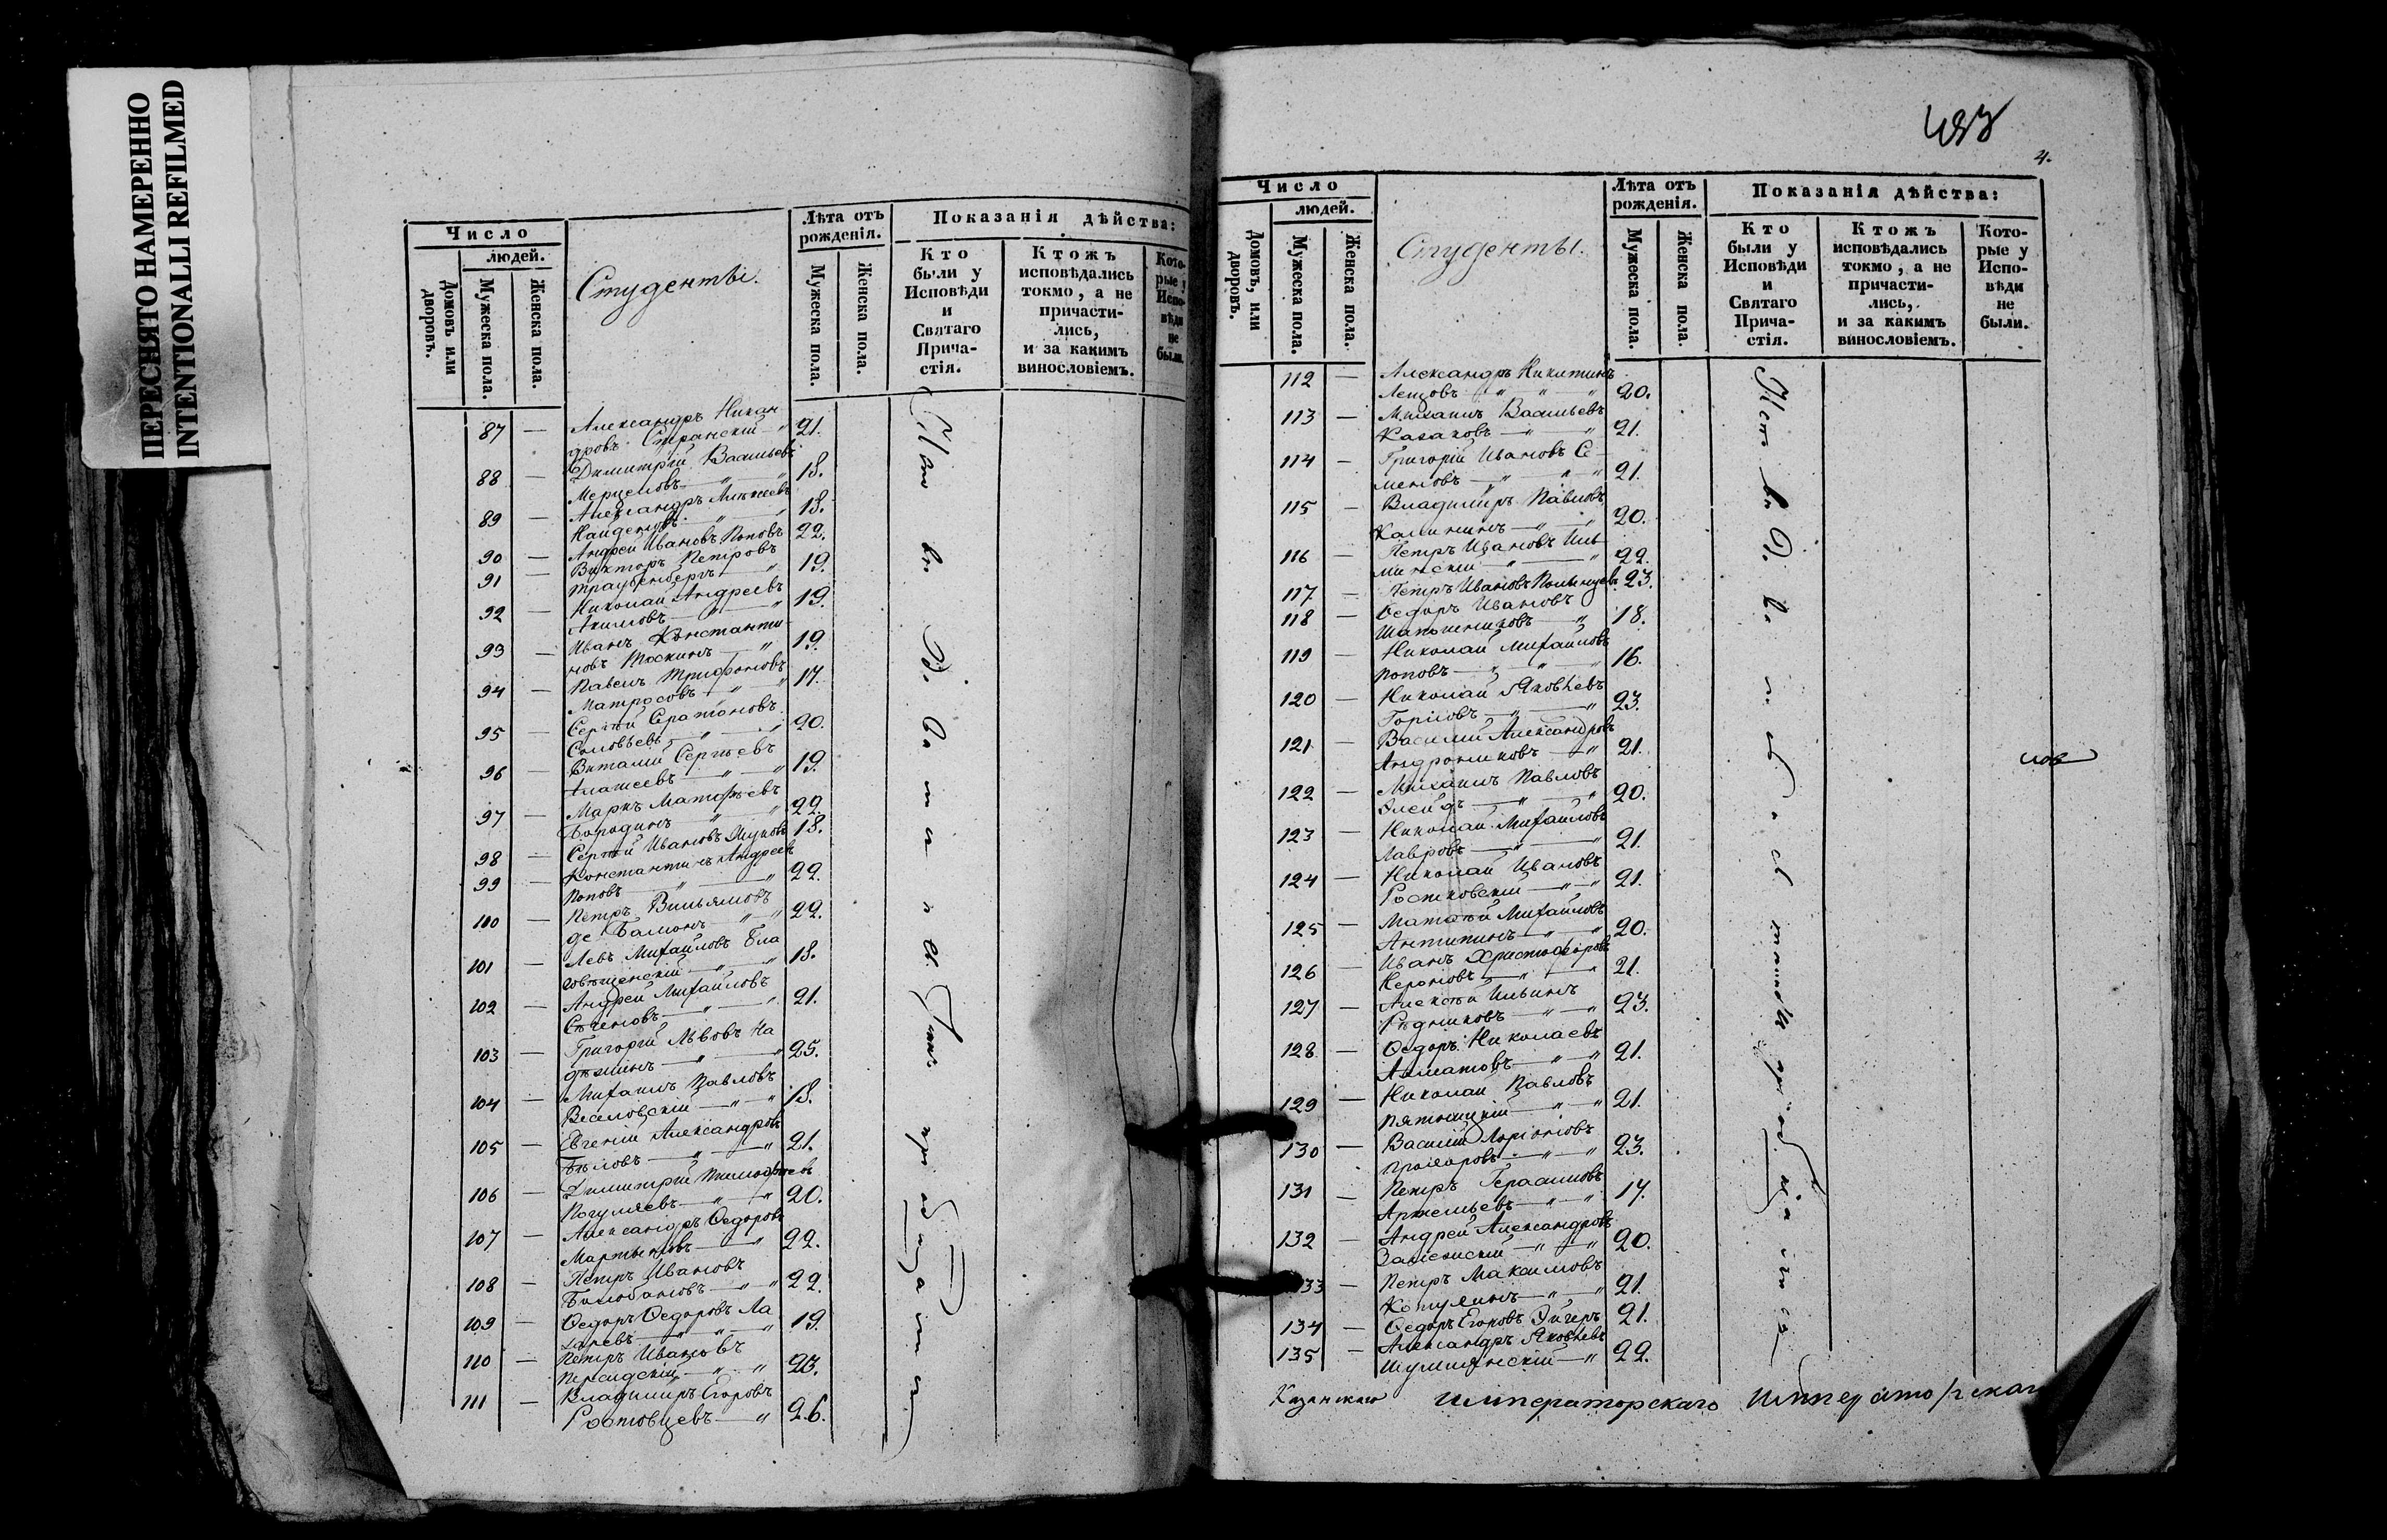 ПЕРЕСНЯТО НАМЕРЕННО
INTENTIONALLI REFILMED
Число
людей.
Домовъ или дворовъ.
Мужеска пола.
Женска пола.
Студенты.
Лѣта отъ рожденія.
Мужеска пола.
Женска пола.
Показанія дѣйства:
Кто были у Исповѣди и Святаго Прича-стія.
Ктожъ исповѣдались токмо, а не причасти-лись, и за какимъ винословіемъ.
Кото-рые у Испо-вѣди не были.
87 — Александръ Никан
дровъ Странскій — " 21.
88 — Димитрій Васильевъ
Мерцаловъ — " 18.
89 — Александръ Алексѣевъ
Найденовъ — " 18.
90 — Андрей Ивановъ Поповъ 22.
91 — Викторъ Петровъ
Траубенбергъ — " 19.
92 — Николай Андреевъ
Акимовъ — " 19.
93 — Иванъ Константи
новъ Москинъ — " 19.
94 — Павелъ Трифоновъ
Матросовъ — " 17.
95 — Сергѣй
Соловьевъ — " 20.
96 — Виталій Сергѣевъ
19.
97 — Маркъ Матфѣевъ
Бородинъ — " 22.
98 — Сергѣй Ивановъ Жуковъ 18.
99 — Константинъ Андреевъ
Поповъ — " 22.
100 — Петръ Вильямовъ
де Бальонъ — " 22.
101 — Левъ Михайловъ Бла
говѣщенскій — " 18.
102 — Андрей Михайловъ
Сѣченовъ — " 21.
103 — Григорій Львовъ На
дѣжинъ — " 25.
104 — Михаилъ Павловъ
Веселовскій — " 18.
105 — Евгеній Александровъ
Бѣловъ — " 21.
106 — Димитрій Тимофѣевъ
Погуляевъ — " 20.
107 — Александръ Ѳедоровъ
Мартыновъ — " 22.
108 — Петръ Ивановъ
Балобановъ — " 22.
109 — Ѳедоръ Ѳедоровъ Ла
заревъ — " 19.
110 — Петръ Ивановъ
Персидскій — " 23.
111 — Владимиръ Егоровъ
Ростовцевъ — " 26.
4.
Число
людей.
Домовъ, или дворовъ.
Мужеска пола.
Женска пола.
Студенты.
Лѣта отъ рожденія.
Мужеска пола.
Женска пола.
Показанія дѣйства:
Кто были у Исповѣди и Святаго Прича-стія.
Ктожъ исповѣдались токмо, а не причасти-лись, и за какимъ винословіемъ.
Кото-рые у Испо-вѣди не были.
112 — Александръ Никитинъ
20.
113 — Михаилъ Васильевъ
Казаковъ — " 21.
114 — Григорій Ивановъ Се-
меновъ — " 21.
115 — Владимиръ Павловъ
Калининъ — " 20.
116 — Петръ Ивановъ Иль
минскій — " 22.
117 — Петръ Ивановъ 23.
118 — Ѳедоръ Ивановъ
Шапошниковъ — " 18.
119 — Николай Михайловъ
Поповъ — " 16.
120 — Николай Яковлевъ
23.
121 — Василій Александровъ
Андрониковъ — " 21.
122 — Михаилъ Павловъ
20.
123 — Николай Михайловъ
Лавровъ — " 21.
124 — Николай Ивановъ
Ростковскій — " 21.
125 — Матвѣй Михайловъ
Антипинъ — " 20.
126 — Иванъ Христофоровъ
Нероновъ — " 21.
127 — Алексѣй Ильинъ
Рѣдниковъ — " 23.
128 — Ѳедоръ Николаевъ
Ахматовъ — " 21.
129 — Николай Павловъ
Пятницкій — " 21.
130 — Василій Ларіоновъ
Прохоровъ — " 23.
131 — Петръ Герасимовъ
17.
132 — Андрей Александровъ
Залѣсскій — " 20.
133 — Петръ Максимовъ
Котулинъ — " 21.
134 — Ѳедоръ Егоровъ Эйгеръ 21.
135 — Александръ Яковлевъ
Шумлянскій — " 22.
Казанскаго Императорскаго Императорскаго